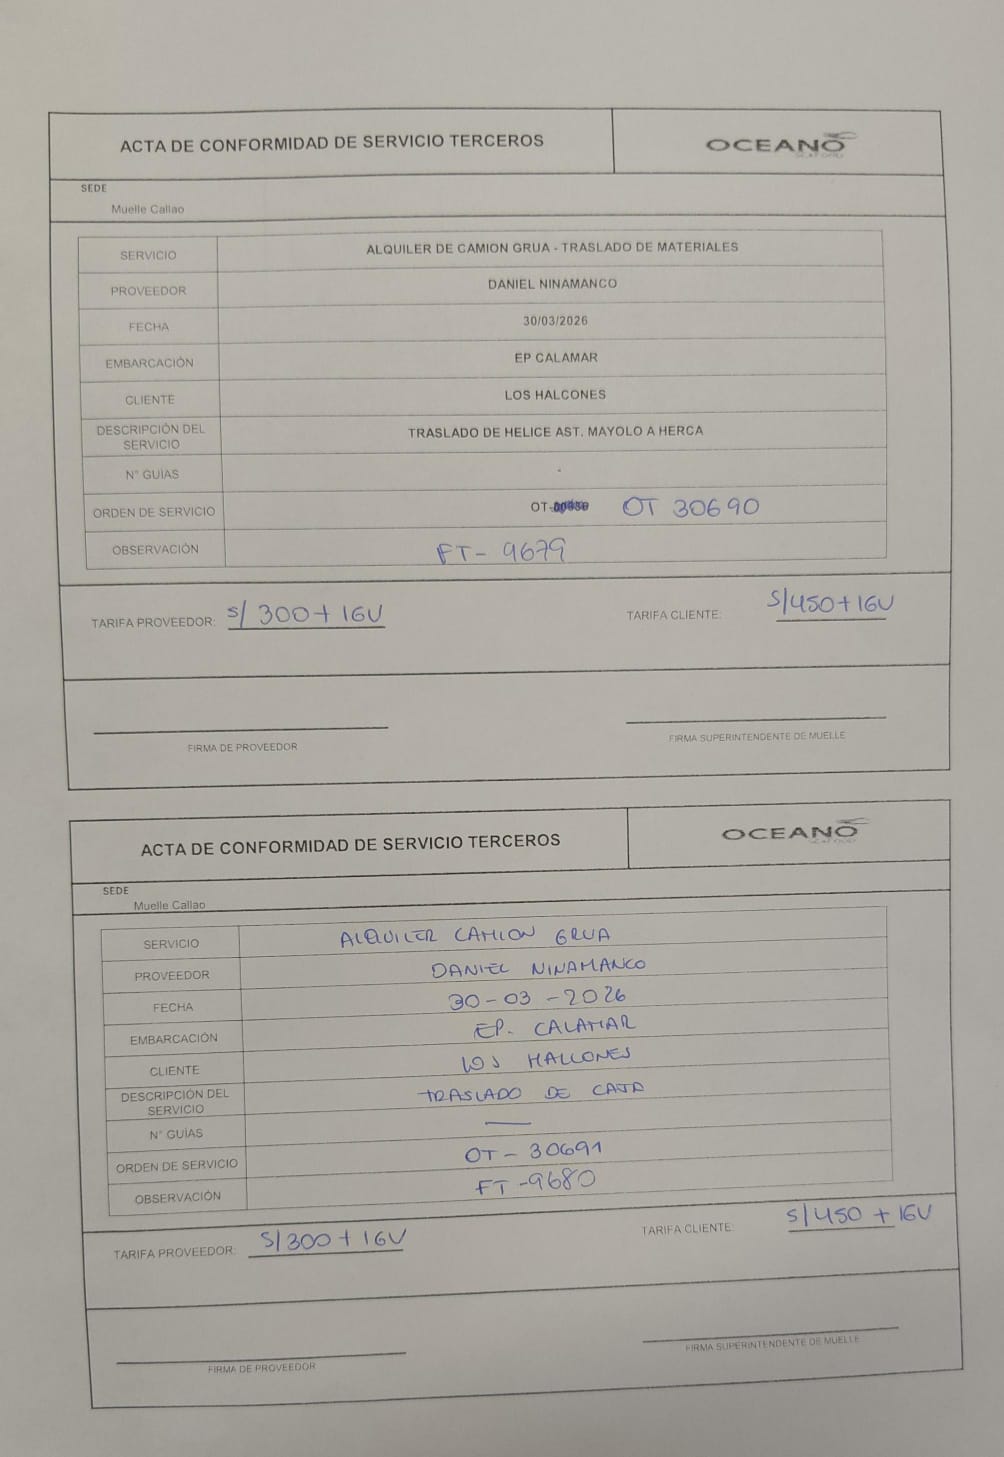 ACTA DE CONFORMIDAD DE SERVICIO TERCEROS
OCEANO
SEDE
Muelle Callao
SERVICIO ALQUILER DE CAMION GRUA - TRASLADO DE MATERIALES
PROVEEDOR DANIEL NINAMANCO
FECHA 30/03/2026
EMBARCACIÓN EP CALAMAR
CLIENTE LOS HALCONES
DESCRIPCIÓN DEL SERVICIO TRASLADO DE HELICE AST. MAYOLO A HERCA
N° GUIAS -
ORDEN DE SERVICIO OT- OT 30690
OBSERVACIÓN FT- 9679
TARIFA PROVEEDOR: S/ 300 + IGV TARIFA CLIENTE: S/450 + IGV
FIRMA DE PROVEEDOR FIRMA SUPERINTENDENTE DE MUELLE
ACTA DE CONFORMIDAD DE SERVICIO TERCEROS
OCEANO
SEDE
Muelle Callao
SERVICIO ALQUILER CAMION GRUA
PROVEEDOR DANIEL NINAMANCO
FECHA 30-03-2026
EMBARCACIÓN EP. CALAMAR
CLIENTE LOS HALCONES
DESCRIPCIÓN DEL SERVICIO TRASLADO DE CAJA
N° GUÍAS —
ORDEN DE SERVICIO OT-30691
OBSERVACIÓN FT-9680
TARIFA PROVEEDOR: S/300 + IGV TARIFA CLIENTE: S/450 + IGV
FIRMA DE PROVEEDOR FIRMA SUPERINTENDENTE DE MUELLE